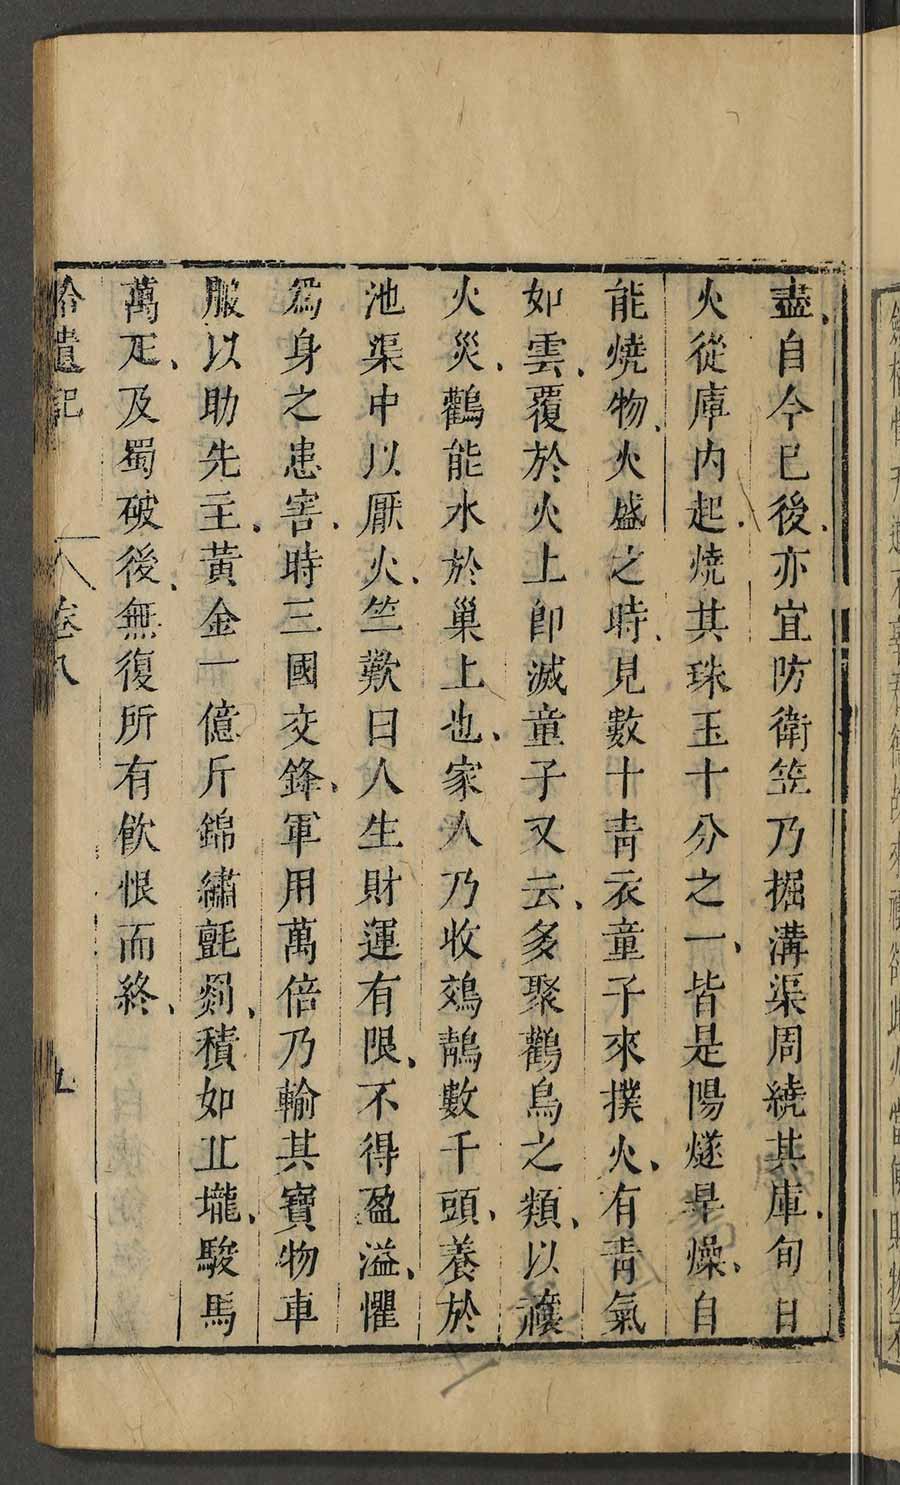 盡自今已後亦宜防衛笠乃掘溝渠周繞其庫旬日
火從庫内起燒其珠玉十分之一皆是陽燧旱燥自
能燒物火盛之時見數十青衣童子來撲火有青氣
如雲覆於火上即滅童子又云多聚鸛鳥之類以禳
火災鸛能水於巢上也家人乃收鵁鶄數千頭養於
池渠中以厭火竺歎曰人生財運有限不得盈溢懼
爲身之患害時三國交鋒軍用萬倍乃輸其寶物車
服以助先主黃金一億斤錦繡氈罽積如丘壠駿馬
萬疋及蜀破後無復所有飲恨而終
拾遺記 卷八 九